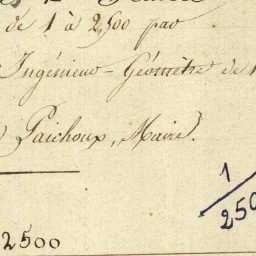 de 1 à 2,500 par
Ingénieur-Géomètre de
Paichoux, Maire.
1
250
2500